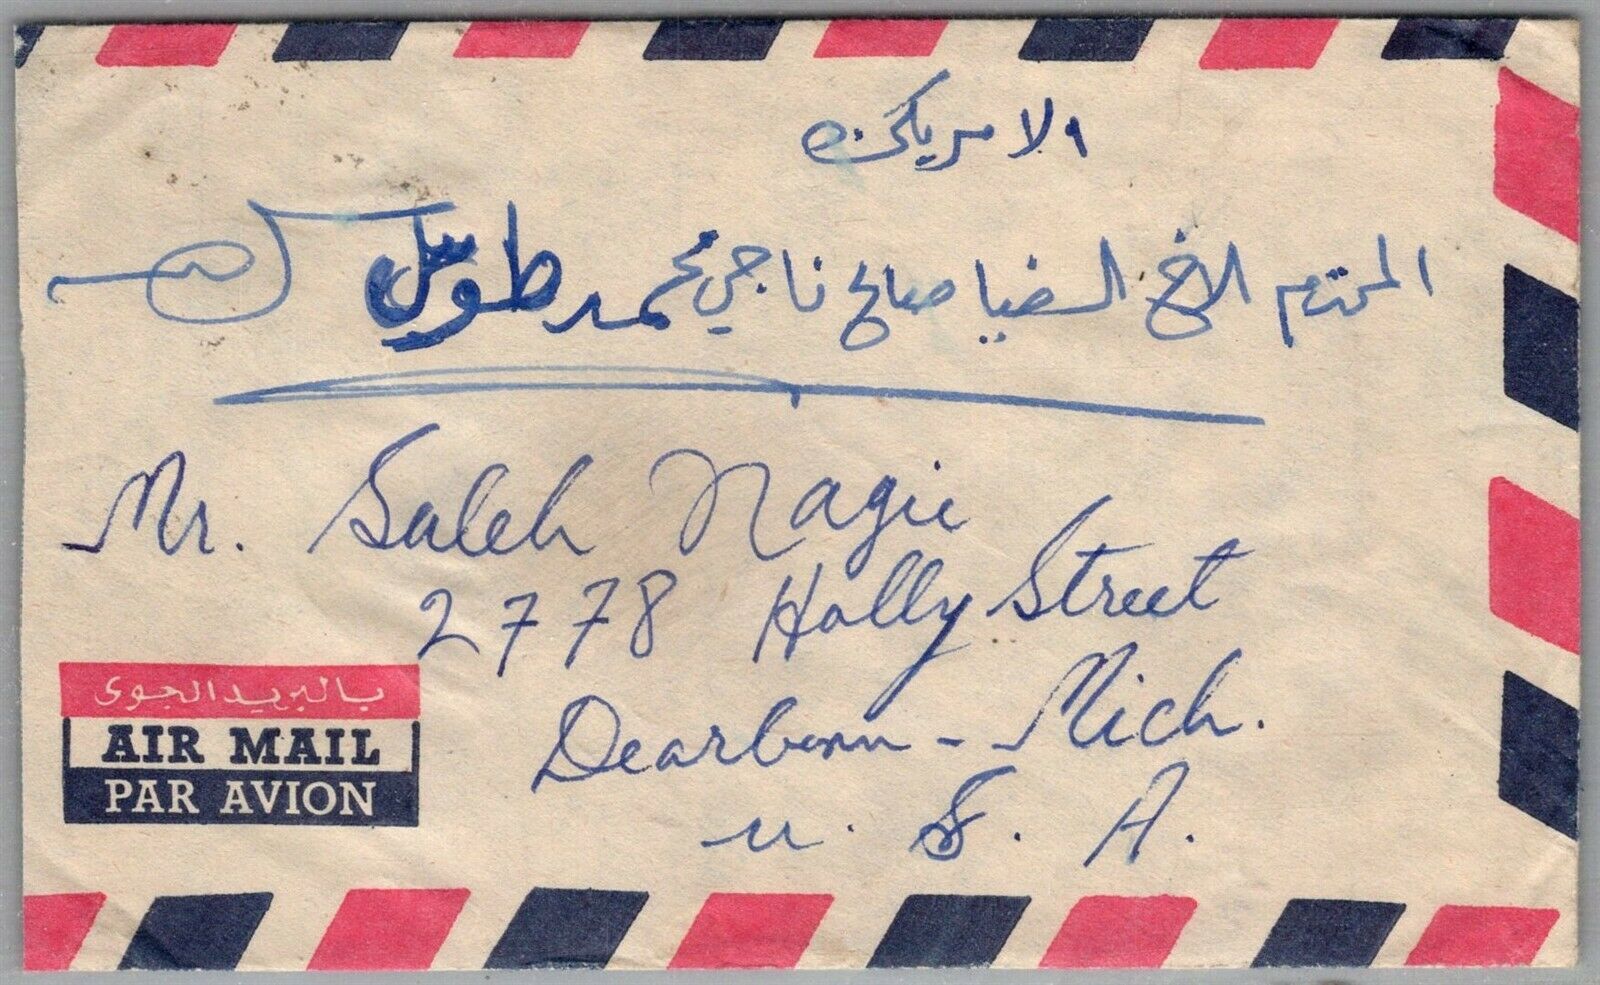 الامريكه
المحترم الاخ صالح ناجي محمد طوس
Mr. Saleh Nagie
2778 Holly Street
Dearborn - Mich.
U. S. A.
بالبريد الجوى
AIR MAIL
PAR AVION